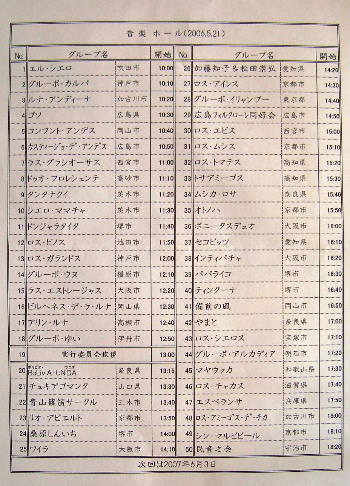 音楽 ホール(2006.5.21)
No. グループ名 開始
1 エル・シエロ 吹田市 10:00
2 グルーポ・カルパ 神戸市 10:10
3 ルナ・アンディーナ 加古川市 10:20
4 ゴソ 広島県 10:30
5 コンフント・アンデス 岡山市 10:40
6 カスティージョ・デ・アンデス 広島市 10:50
7 ラス・グラシオーサス 西宮市 11:00
8 ドゥオ・フロレシェンテ 高砂市 11:10
9 タンタナクイ 茨木市 11:20
10 シエロ・ママチャ 茨木市 11:30
11 ドンジャラタイタ 堺市 11:40
12 ロス・ピノス 池田市 11:50
13 ロス・ガランドス 神戸市 12:00
14 グルーポ・ウヌ 橿原市 12:10
15 ラス・エストレージャス 大阪市 12:20
16 ビルヘネス・デ・ラ・ルナ 岡山県 12:30
17 アリン・ルナ 高槻市 12:40
18 グルーポ・ゆい 伊丹市 12:50
19 実行委員会挨拶 13:00
20 奈良県 13:15
21 チュキアゴマンタ 山口県 13:30
22 青山篠笛サークル 三木市 13:40
23 リオ・アビエルト 京都市 13:50
24 桑原しんいち 堺市 14:00
25 ワイラ 大阪市 14:10
No. グループ名 開始
26 加藤知子&松田崇弘 愛知県 14:20
27 ロス・アイレス 京都市 14:30
28 グルーポ・イリャンプー 東京都 14:40
29 広島フォルクローレ同好会 広島市 14:50
30 ロス・エピス 西宮市 15:00
31 ロス・ムシス 京都市 15:10
32 ロス・トマテス 高知県 15:20
33 トサアミーゴス 高知県 15:30
34 ムシカ・ロサ 奈良県 15:40
35 オトノハ 京都市 15:50
36 ボニータスデュオ 大阪市 16:00
37 セコビッツ 愛知県 16:10
38 インティパチャ 大阪市 16:20
39 パパライコ 堺市 16:30
40 ティンクーナ 堺市 16:40
41 備前の風 岡山市 16:50
42 やまと 奈良県 17:00
43 ロス・シエロス 宝塚市 17:10
44 グルーポ・アルカディア 明石市 17:20
45 マヤウァカ 和歌山県 17:30
46 ロス・チャカス 滋賀県 17:40
47 エスペランサ 兵庫県 17:50
48 ロス・アミーゴス・デ・チカ 加古川市 18:00
49 シン・マルビビール 京都市 18:10
50 民音之会 宇治市 18:20
次回は2007年6月3日